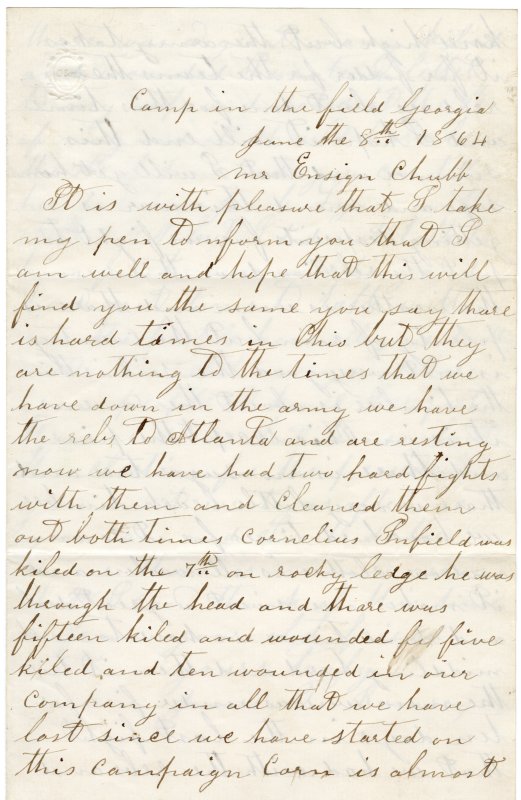 Camp in the field Georgia
June the 8th 1864
mr Ensign Chubb
It is with pleasure that I take
my pen to nform you that I
am well and hope that this will
find you the same you say thare
is hard times in Ohio but they
are nothing to the times that we
have down in the army we have
the rebs to Atlanta and are resting
now we have had two hard fights
with them and cleaned them
out both times Cornelius Infield was
kiled on the 7th on rocky ledge he was
through the head and thare was
fifteen kiled and wounded five
kiled and ten wounded in our
company in all that we have
lost since we have started on
this campaign Corn is almost